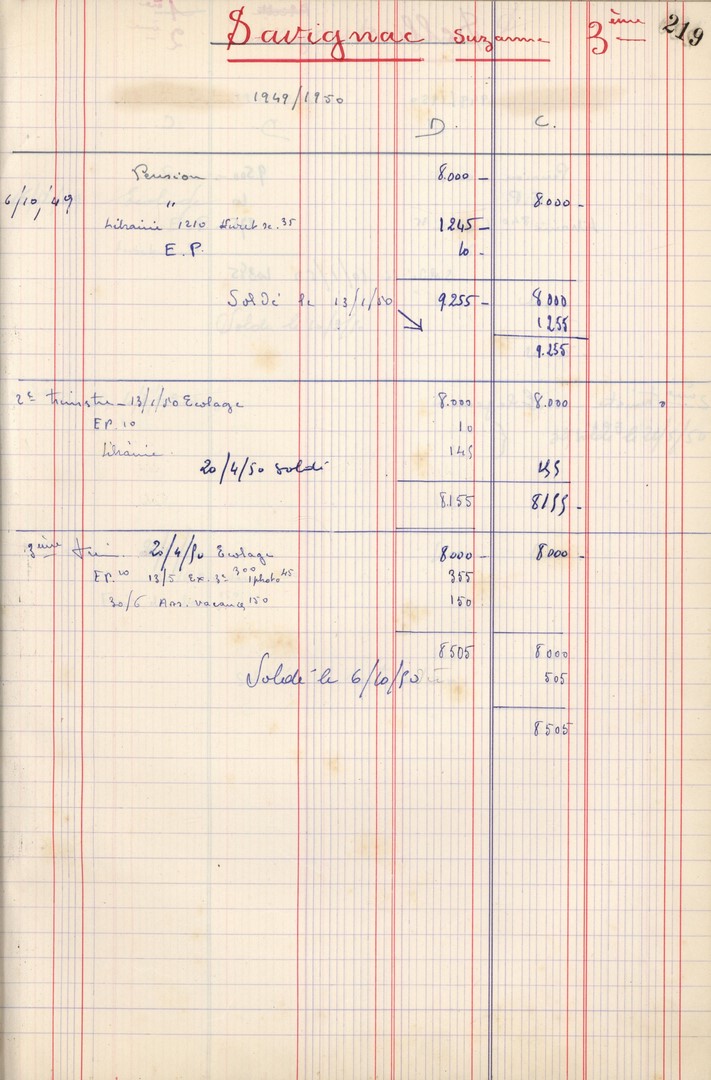 Savignac Suzanne 3ème 219
1949/1950
D. C.
Pension 8.000 -
6/10/49 " 8.000 -
Librairie 1210 Livret sc. 35 1245 -
E.P. 10 -
Soldé le 13/1/50 9.255 - 8000
1255
9.255
2e trimstre - 13/1/50 Ecolage 8.000 8.000
EP. 10 10
Librairie 145
20/4/50 soldé 155
8155 8155 -
3ème trim. 20/4/50 Ecolage 8000 - 8000 -
EP. 10 13/5 Ex. 3e 300 1 photo 45 355
30/6 Ass. vacances 150 150
8505 8000
Soldé le 6/10/50 505
8505